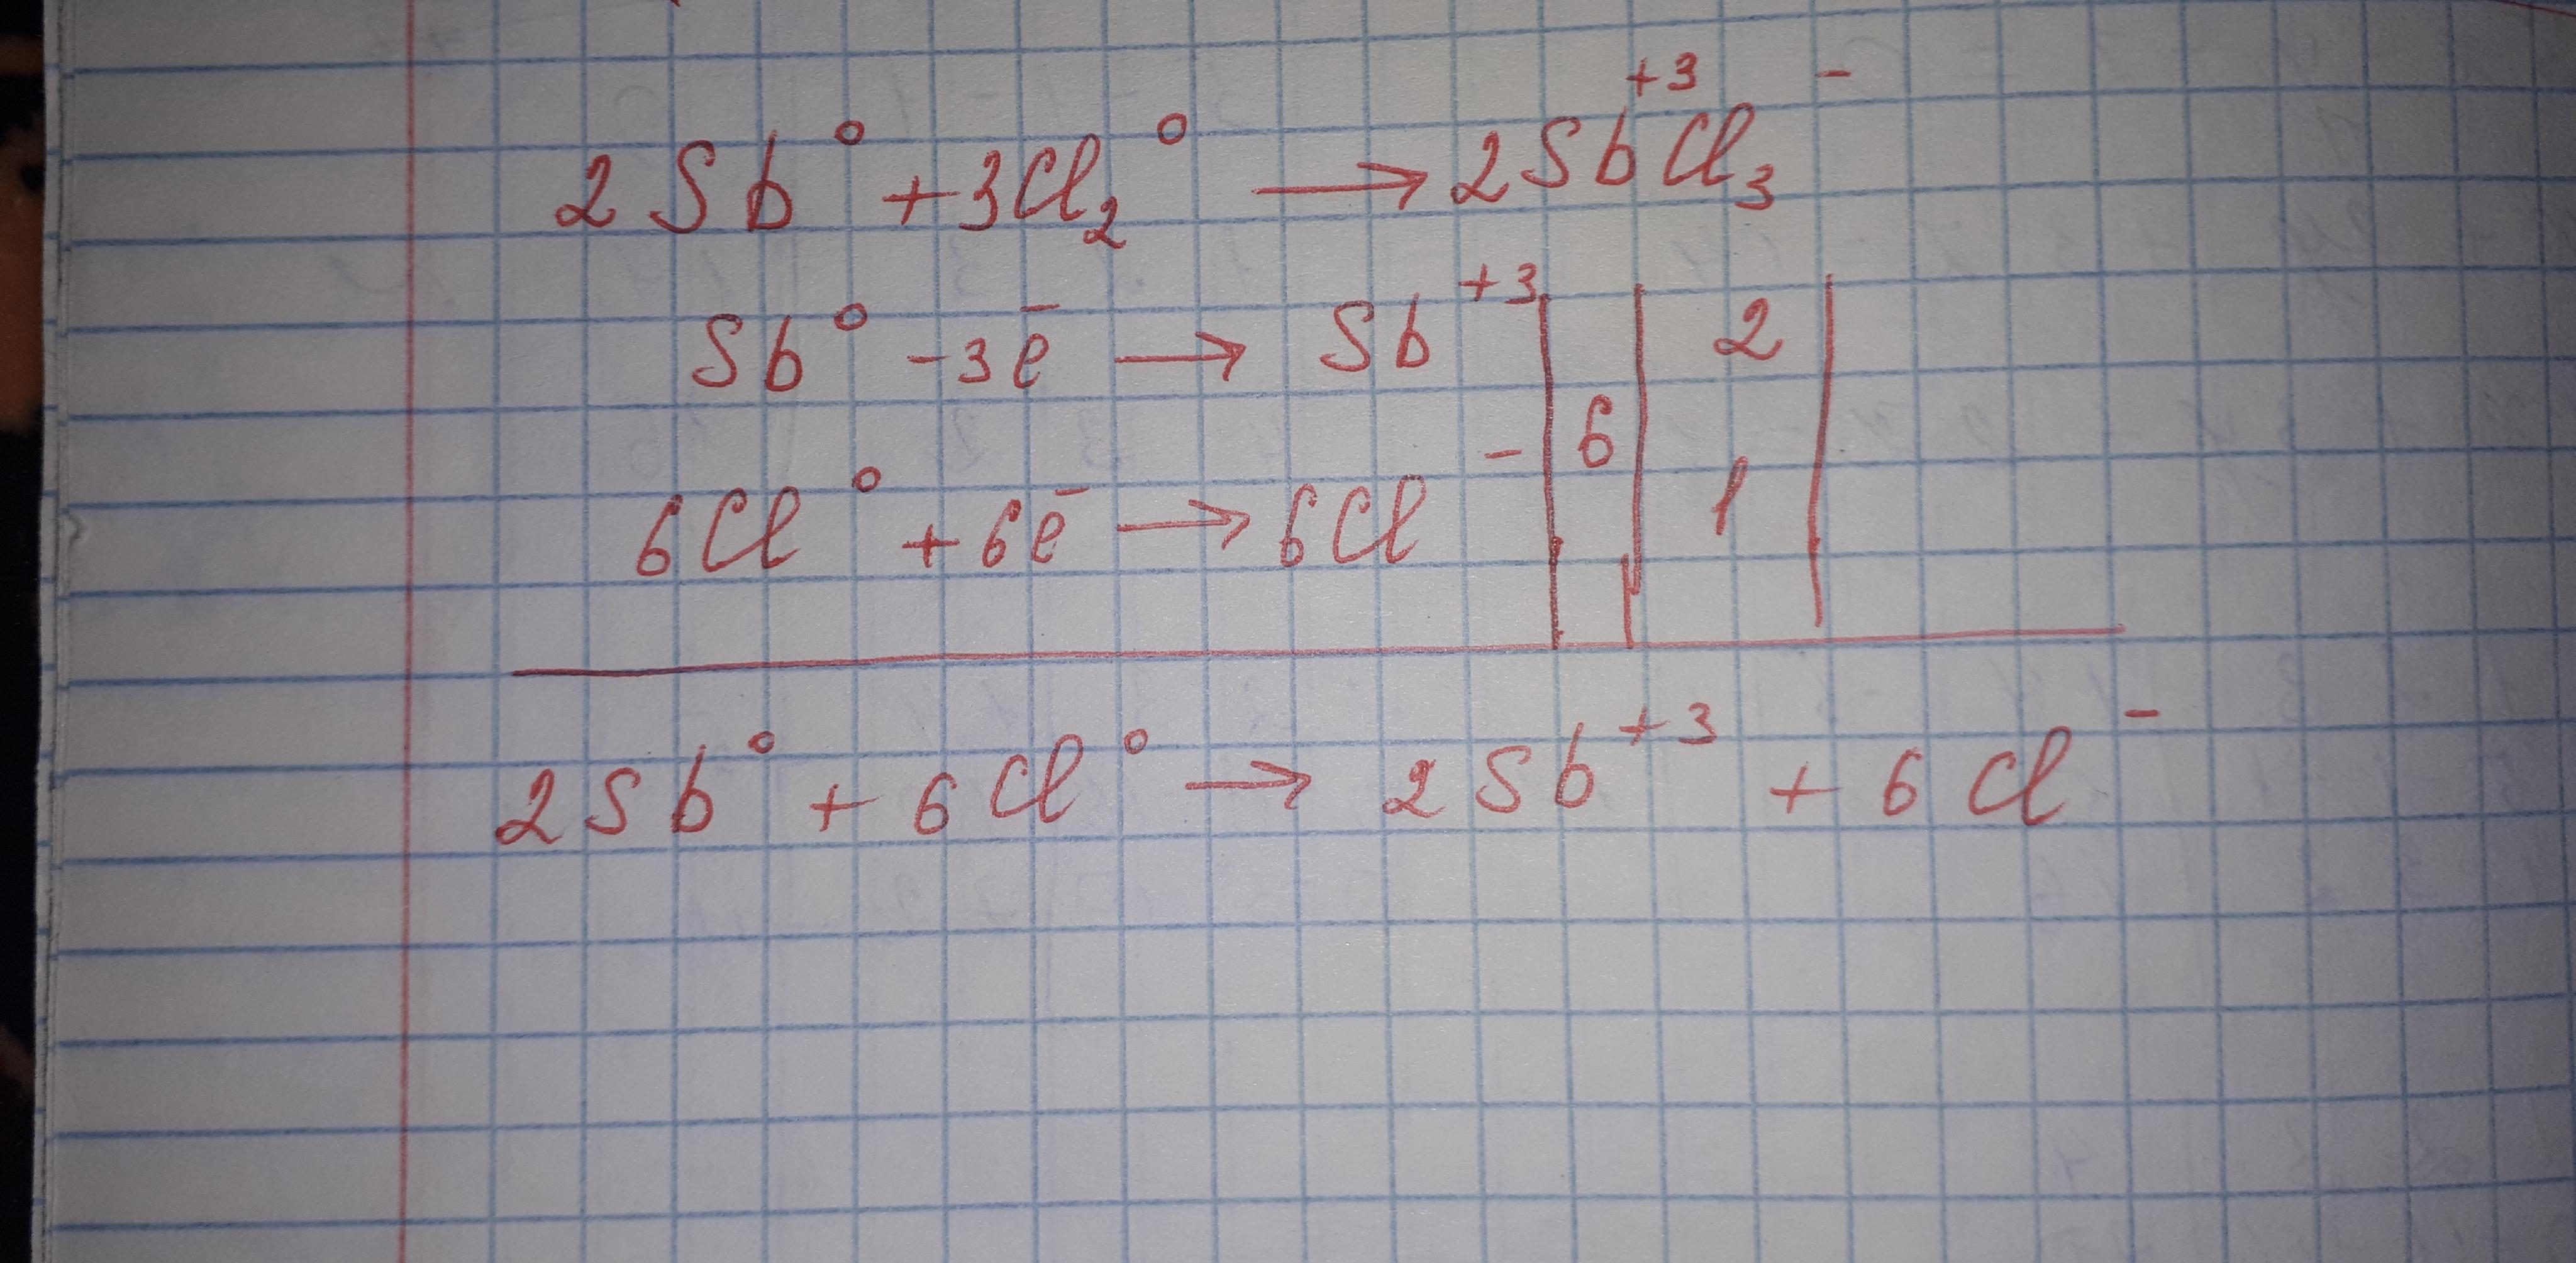 2Sb⁰ + 3Cl₂⁰ → 2Sb⁺³Cl₃⁻
Sb⁰ - 3ē → Sb⁺³ | 6 | 2 |
6Cl⁰ + 6ē → 6Cl⁻ | | 1 |
2Sb⁰ + 6Cl⁰ → 2Sb⁺³ + 6Cl⁻